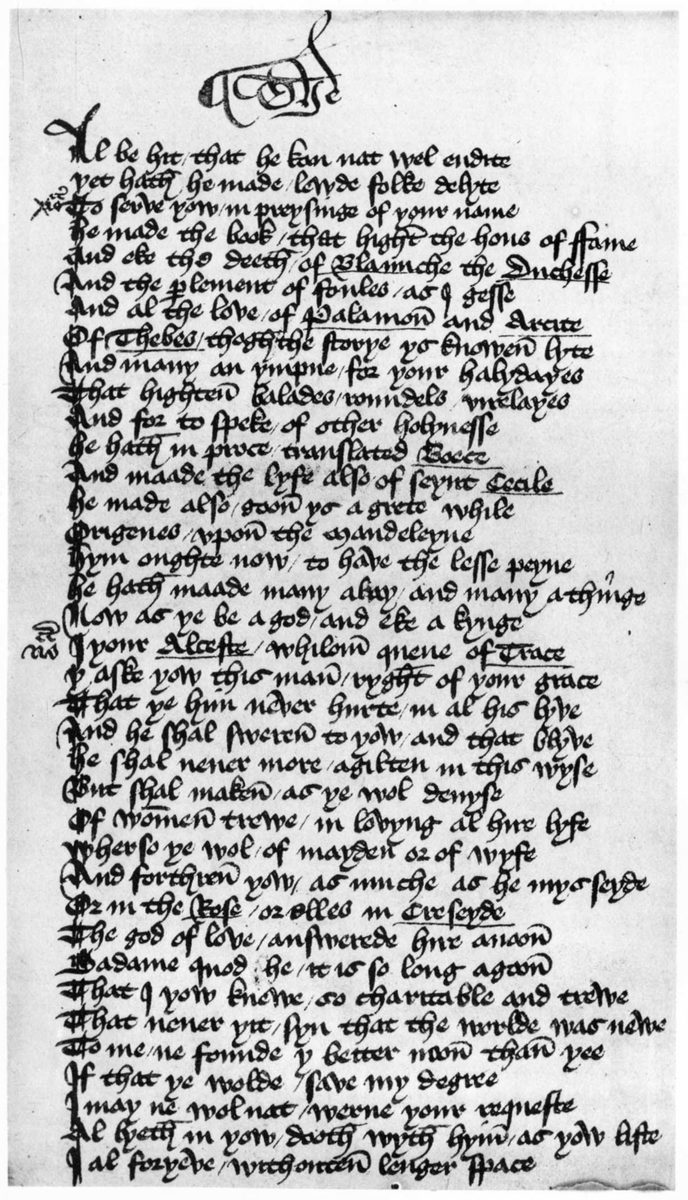 Al be hit / that he kan nat wel endite
yet hath he made / lewde folke delyte
To serve yow / in preysinge of your name
he made the book / that hight the hous of ffame
And eke the deeth / of Blaunche the Duchesse
And the plement of foules / as I gesse
And al the love / of Palamon and Arcite
Of Thebes / thogh the storye ys knowen lyte
And many an ympne / for your halydayes
That highten balades / roundels / virelayes
And for to speke / of other holynesse
he hath in prose / translated Boece
And maade the lyfe also / of seynt Cecile
he made also / goon ys a grete while
Origenes / vpon the Maudeleyne
hym oughte now / to have the lesse peyne
he hath maade many a lay / and many a thinge
Now as ye be a god / and eke a kynge
I your Alceste / whilom quene of Trace
y aske yow this man / ryght of your grace
That ye him never hurte / in al his lyve
And he shal sweren to yow / and that blyve
he shal never more / agilten in this wyse
But shal maken / as ye wol devyse
Of women trewe / in lovyng al hire lyfe
wherso ye wol / of mayden or of wyfe
And forthren yow / as muche as he mysseyde
Or in the Rose / or elles in Creseyde
The god of love / answerede hire anoon
Madame quod he / it is so long agoon
That I yow knewe / so charitable and trewe
That never yit / syn that the worlde was newe
To me / ne founde y better noon than yee
If that ye wolde / save my degree
I may ne wol nat / werne your requeste
Al lyeth in yow / dooth wyth hym / as yow liste
I al foryeve / withouten lenger space